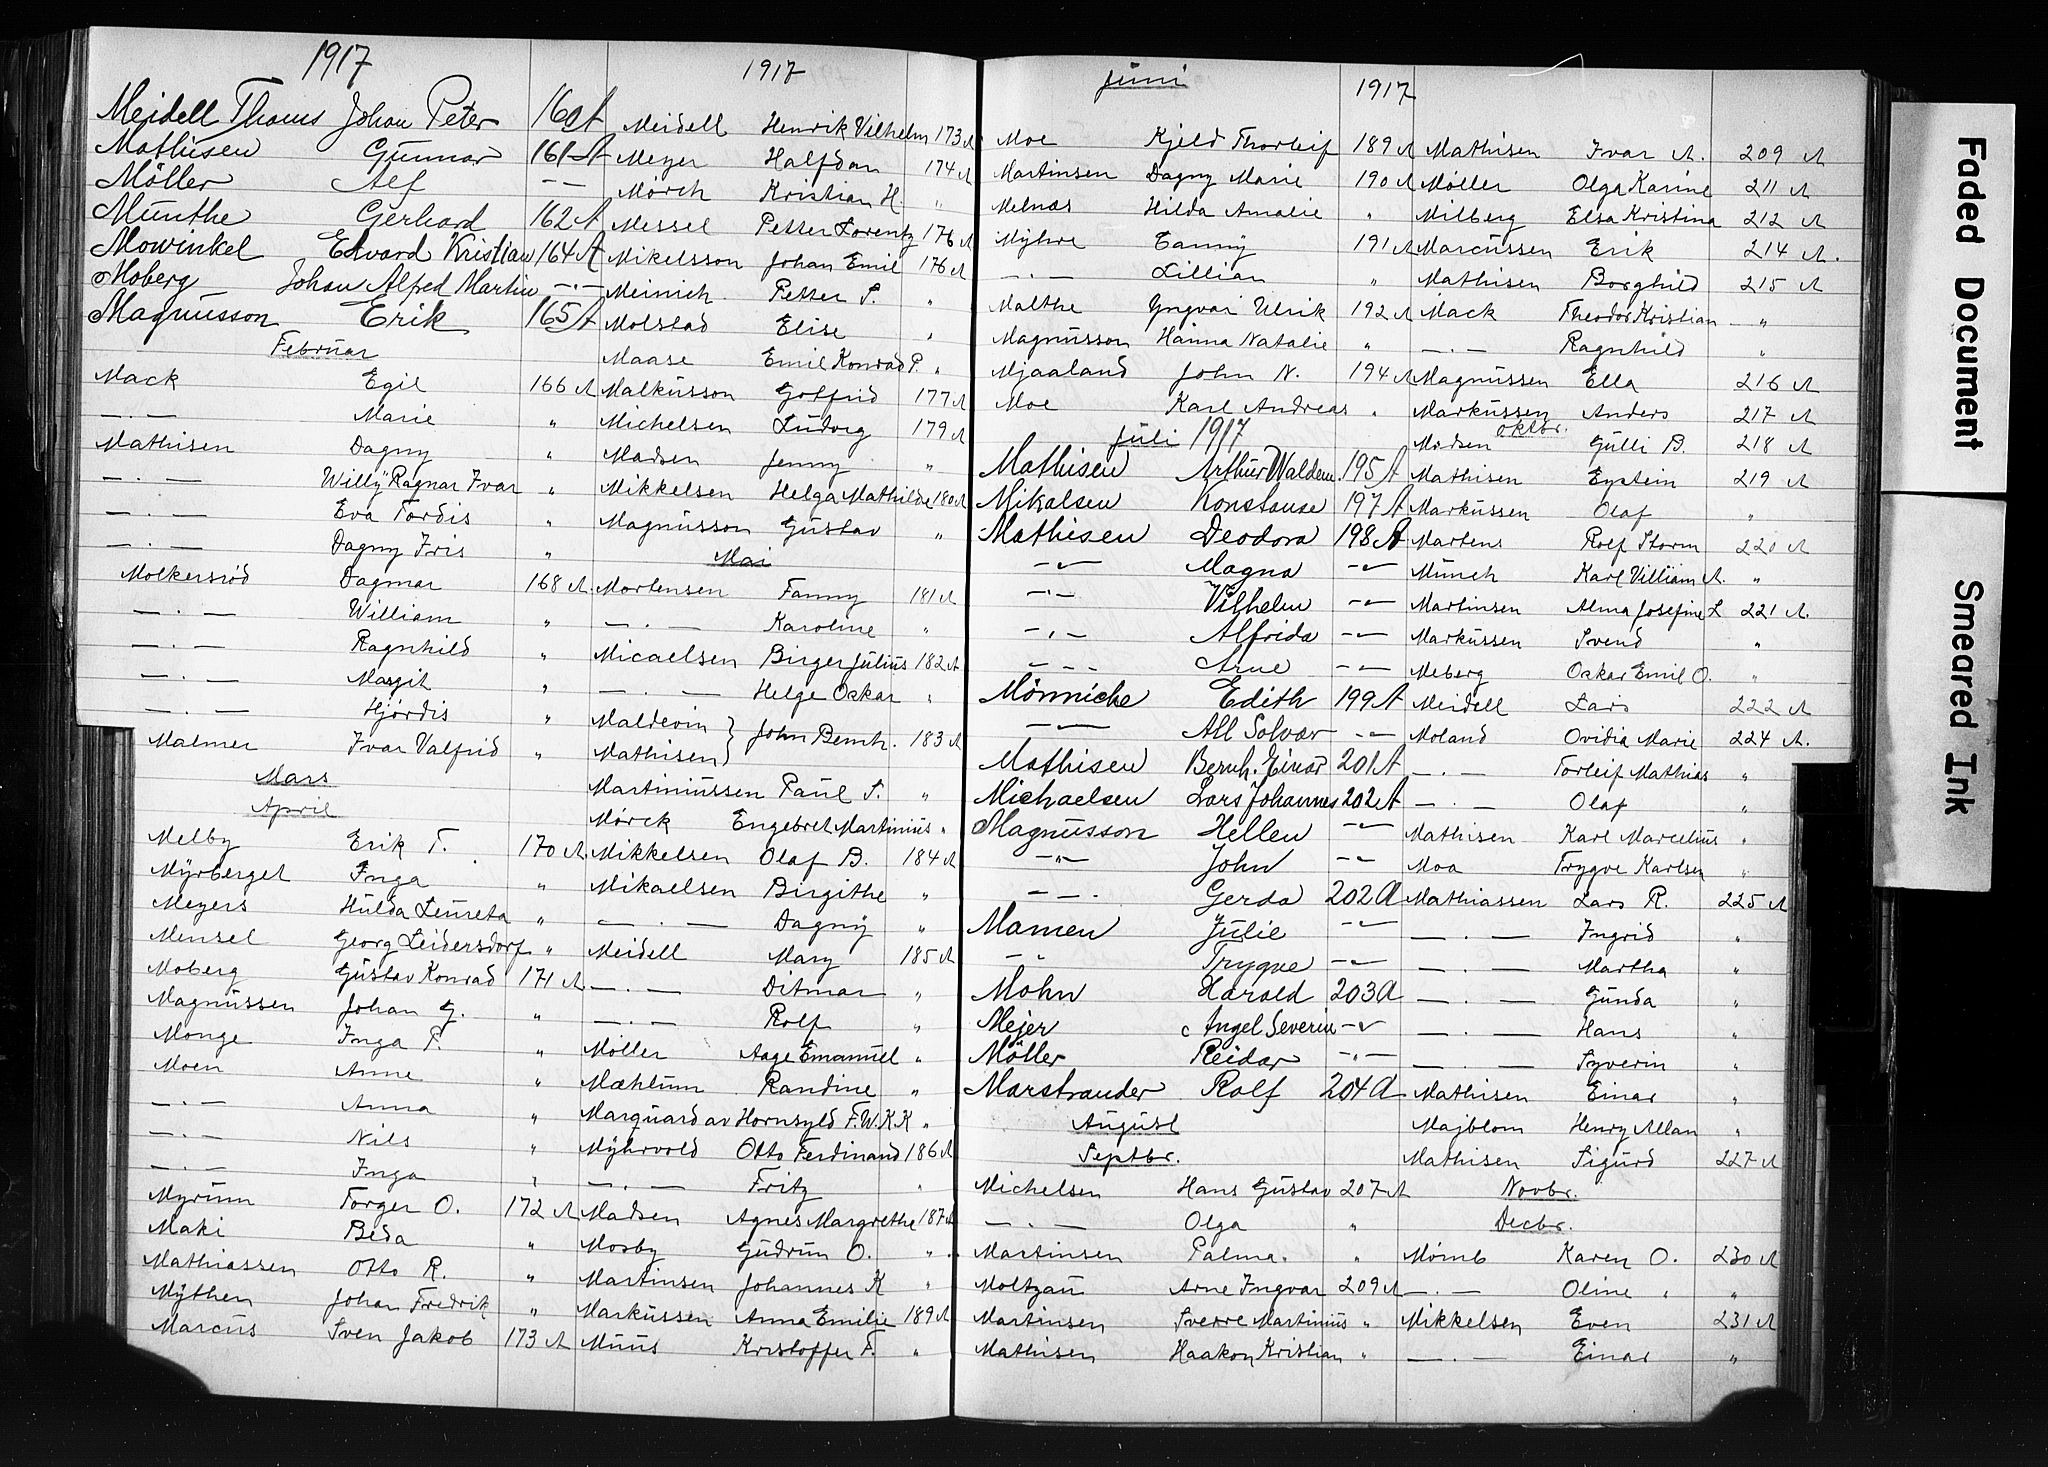 1917
Meidell Thoms Johan Peter 160 A
Mathisen Gunnar 161 A
Möller Alf — —
Munthe Gerhard 162 A
Mowinkel Edvard Kristian 164 A
Moberg Johan Alfred Martin — . —
Magnusson Erik 165 A
Februar
Mack Egil 166 A
— . — Marie "
Mathisen Dagny "
— . — Willy Ragnar Ivar "
— . — Eva Tordis "
— . — Dagny Iris "
Molkersrød Dagmar 168 A.
— . — William "
— . — Ragnhild "
— . — Margit "
— . — Hjørdis "
Malmer Ivar Valfrid "
Mars
April
Melby Erik T. 170 A.
Myrberget Inga "
Meyers Hulda Leureta "
Mensel Georg Leidersdorf "
Moberg Gustav Konrad 171 A
Magnussen Johan G. "
Monge Inga P. "
Moen Anne "
— . — Anna "
— . — Nils "
— . — Inga "
Myrum Torger O. 172 A
Maki Beda "
Mathiassen Otto R. "
Mythen Johan Fredrik "
Marcus Sven Jakob 173 A
1917
Meidell Henrik Vilhelm 173 A
Meyer Halfdan 174 A
Mørch Kristian H. "
Messel Petter Lorentz 176 A
Mikelsson Johan Emil 176 A
Meinich Petter S. "
Molstad Elise "
Maase Emil Konrad P. "
Malkusson Gotfrid 177 A
Michelsen Ludvig 179 A
Madsen Jenny "
Mikkelsen Helga Mathilde 180 A
Magnusson Gustav "
Mai
Mortensen Fanny 181 A
— . — Karoline "
Micaelsen Birger Julius 182 A
— . — Helge Oskar "
Maldevin }
Mathisen } John Bernh. 183 A
Martiniussen Paul S. "
Mørck Engebret Martinius "
Mikkelsen Olaf B. 184 A
Mikaelsen Birgithe "
— . — Dagny "
Meidell Mary 185 A
— . — Ditmar "
— . — Rolf "
Møller Aage Emanuel "
Mæhlum Randine "
Marquard av Hornsyld F.W.K.K "
Myhrvold Otto Ferdinand 186 A
— . — Fritz "
Madsen Agnes Margrethe 187 A
Mosby Gudrun O. "
Martinsen Johannes K "
Markussen Anna Emilie 189 A
Muus Kristoffer F. "
Juni 1917
Moe Kjeld Thorleif 189 A
Martinsen Dagny Marie 190 A
Melnæs Hilda Amalie "
Myhre Fanny 191 A
— . — Lillian "
Malthe Yngvar Ulrik 192 A
Magnusson Hanna Natalie "
Mjaaland John N. 194 A
Moe Karl Andreas "
Juli 1917
Mathisen Arthur Waldem. 195 A
Mikalsen Konstanse 197 A
Mathisen Deodora 198 A
— " — Magna — " —
— " — Vilhelm — " —
— " — Alfrida — " —
— — — Arne — " —
Mönniche Edith 199 A
— " — All Solvær — " —
Mathisen Bernh. Einar 201 A
Michaelsen Lars Johannes 202 A
Magnusson Hellen — " —
— " — John — " —
— " — Gerda 202 A
Mamen Julie — " —
— " Trygve — " —
Mohn Harald 203 A
Mejer Ingel Severin — " —
Möller Reidar — " —
Marstrander Rolf 204 A
August
Septbr.
Michelsen Hans Gustav 207 A
— . — Olga "
Martinsen Palma. "
Moltzau Arne Ingvar 209 A
Martinsen Sverre Martinius "
Mathisen Haakon Kristian "
Mathisen Ivar A. 209 A
Møller Olga Karine 211 A
Milberg Elsa Kristina 212 A
Marcussen Erik 214 A.
Mathisen Borghild 215 A
Mack Theodor Kristian — "
— . — Ragnhild "
Magnussen Ella 216 A
Markussen Anders 217 A
oktbr.
Madsen Gulli B. 218 A
Mathisen Eystein 219 A
Markussen Olaf "
Martens Rolf Storm 220 A
Munch Karl Villiam A. "
Martinsen Alma Josefine L 221 A.
Markussen Svend "
Meberg Oskar Emil O. "
Meidell Lars 222 A
Moland Ovidia Marie 224 A.
— . — Torleif Mathias "
— . — Olaf "
Mathisen Karl Marcelius "
Moa Trygve Karlsen "
Mathiassen Lars R. 225 A
— . — Ingrid "
— . — Martha "
— . — Gunda "
— . — Hans "
— . — Syverin "
Mathisen Einar "
Majblom Henry Allan "
Mathisen Sigurd 227 A
Novbr.
Decbr.
Mømb Karen O. 230 A
— . — Oline "
Mikkelsen Even 231 A
— . — Einar "
Faded Document
Smeared Ink